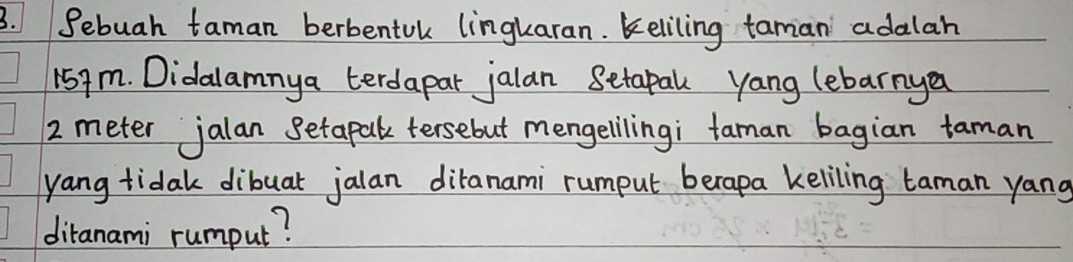 3. Sebuah taman berbentuk lingkaran. Keliling taman adalah
157 m. Didalamnya terdapat jalan Setapak yang lebarnya
2 meter jalan Setapak tersebut mengelilingi taman bagian taman
yang tidak dibuat jalan ditanami rumput berapa keliling taman yang
ditanami rumput?